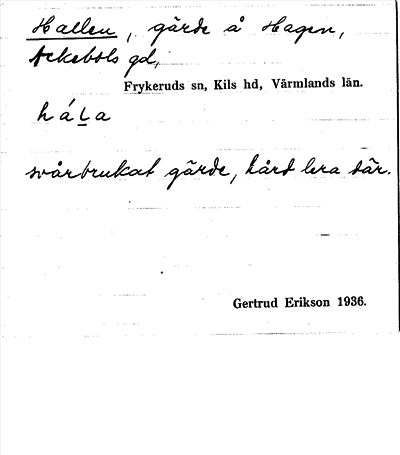 Hallen, gärde å Hagen,
Ackebols gd,
Frykeruds sn, Kils hd, Värmlands län.
háḻa
svårbrukat gärde, hård lera där.
Gertrud Erikson 1936.